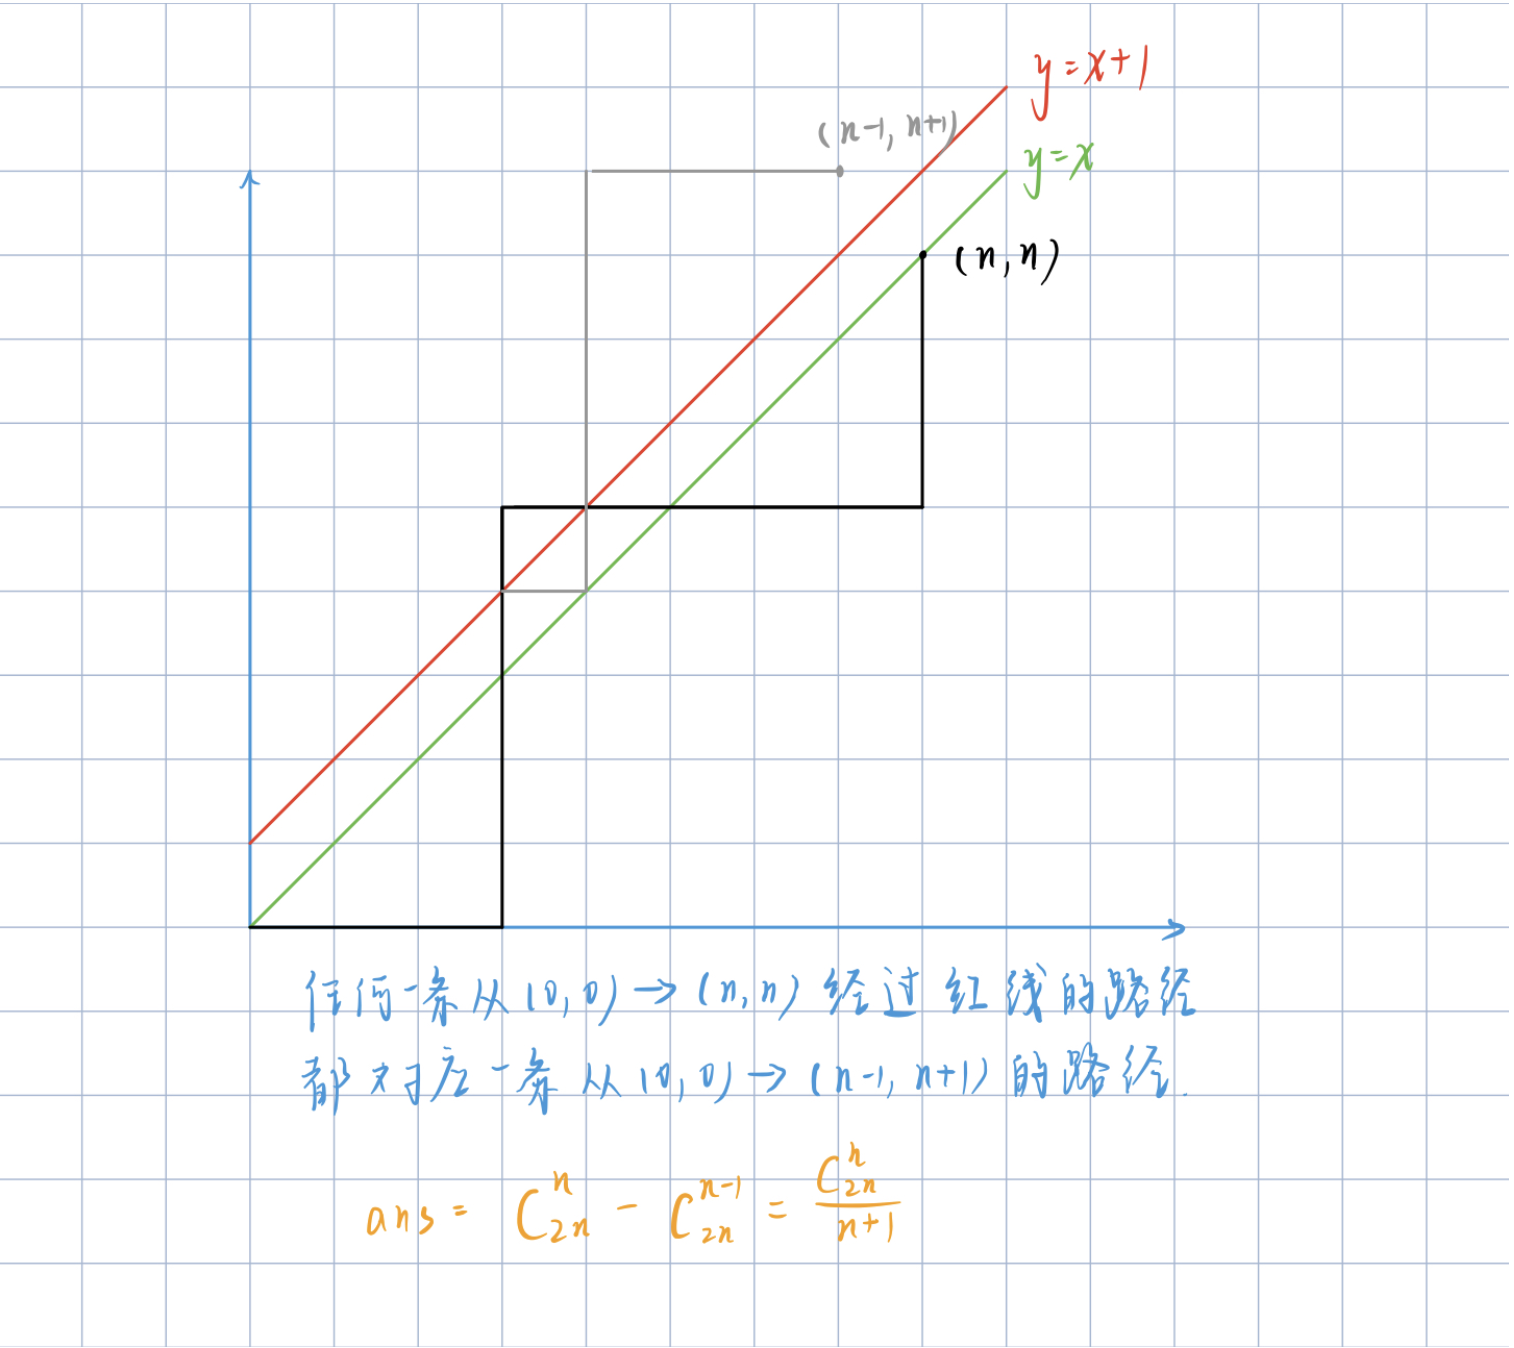 y=x+1
(n-1, n+1)
y=x
(n,n)
任何一条从(0,0)→(n,n)经过红线的路径
都对应一条从(0,0)→(n-1,n+1)的路径.
ans = C_{2n}^{n} - C_{2n}^{n-1} = \frac{C_{2n}^{n}}{n+1}